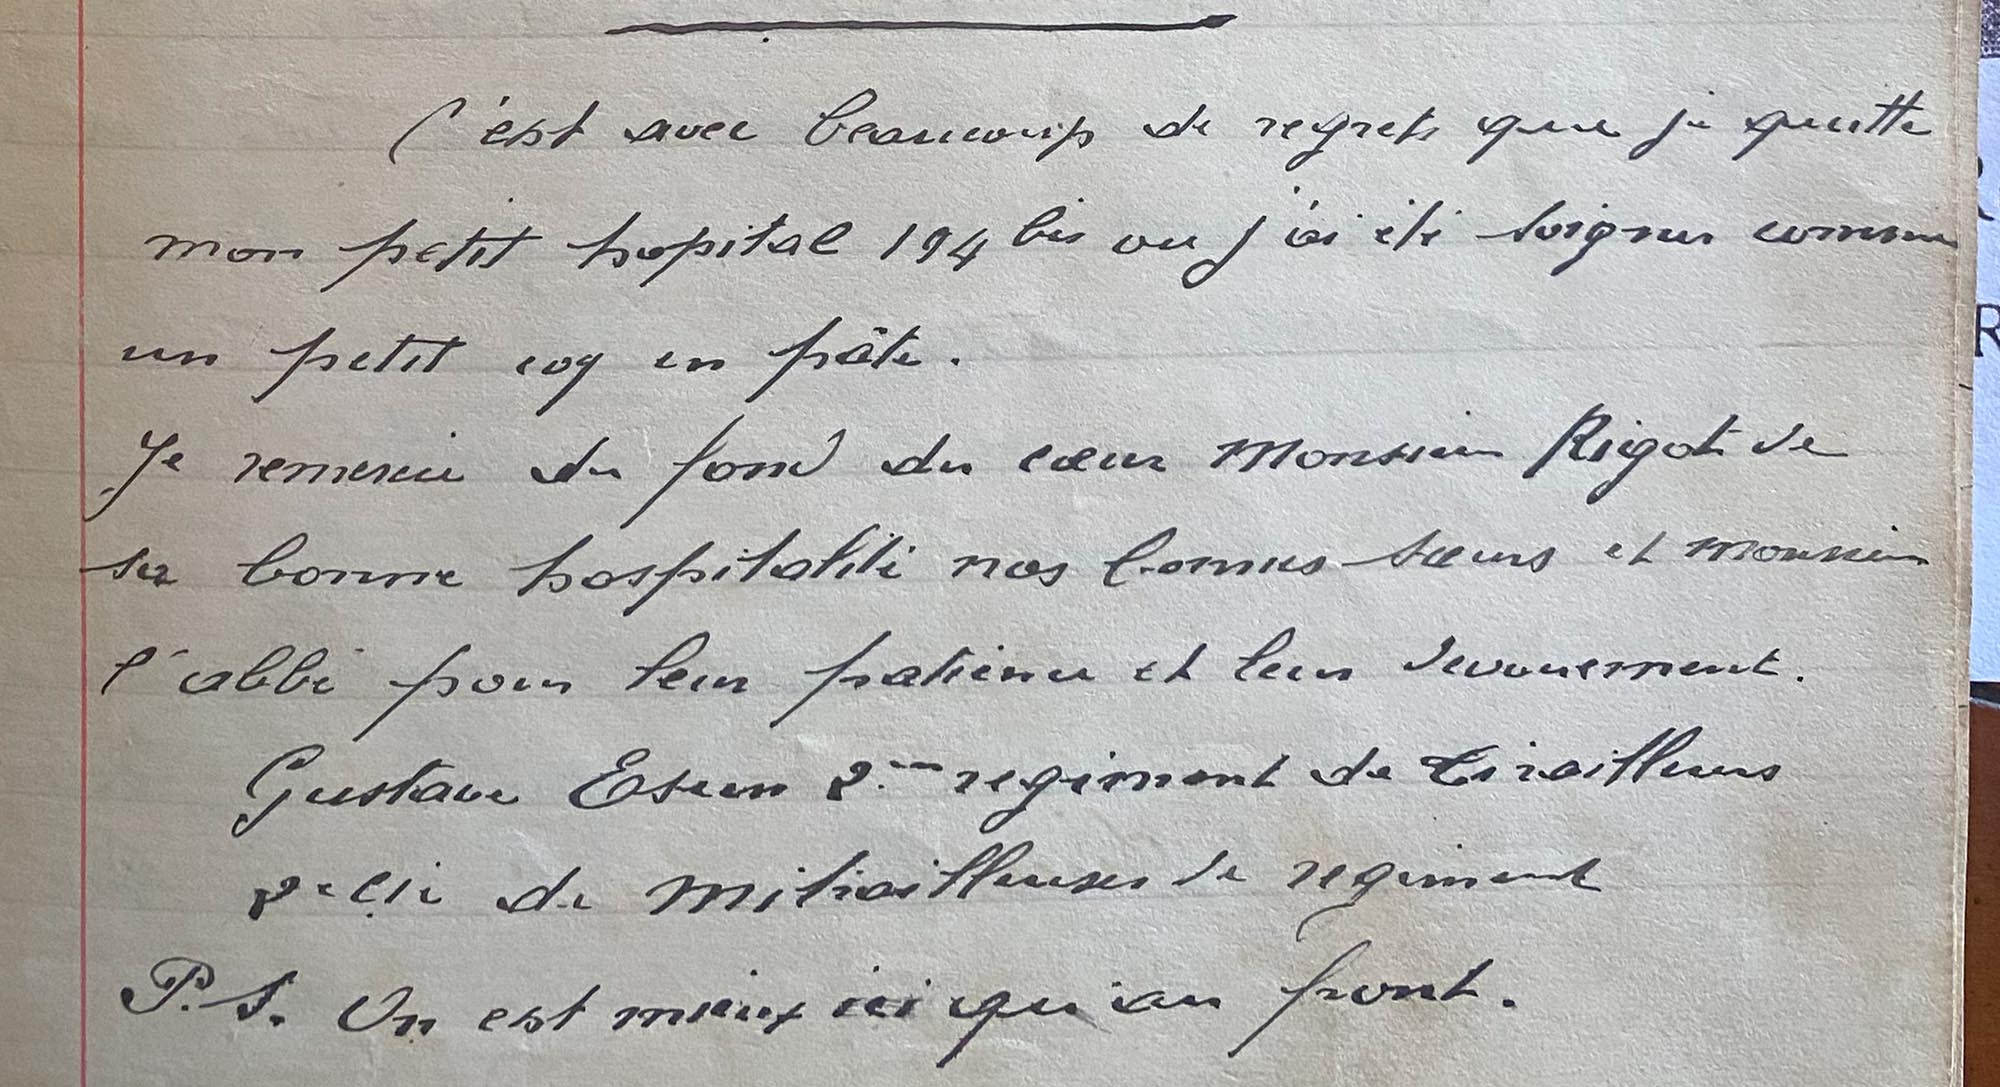 C'est avec beaucoup de regrets que je quitte
mon petit hopital 194 bis ou j'ai été soigner comme
un petit coq en pâte.
Je remercie du fond du cœur Monsieur Rigot de
sa bonne hospitalité nos bonnes sœurs et monsieur
l'abbé pour leur patience et leur devouement.
Gustave 2.me regiment de tirailleurs
2e Cie de Mitrailleuses de regiment
P.S. On est mieux ici qu'au front.
R